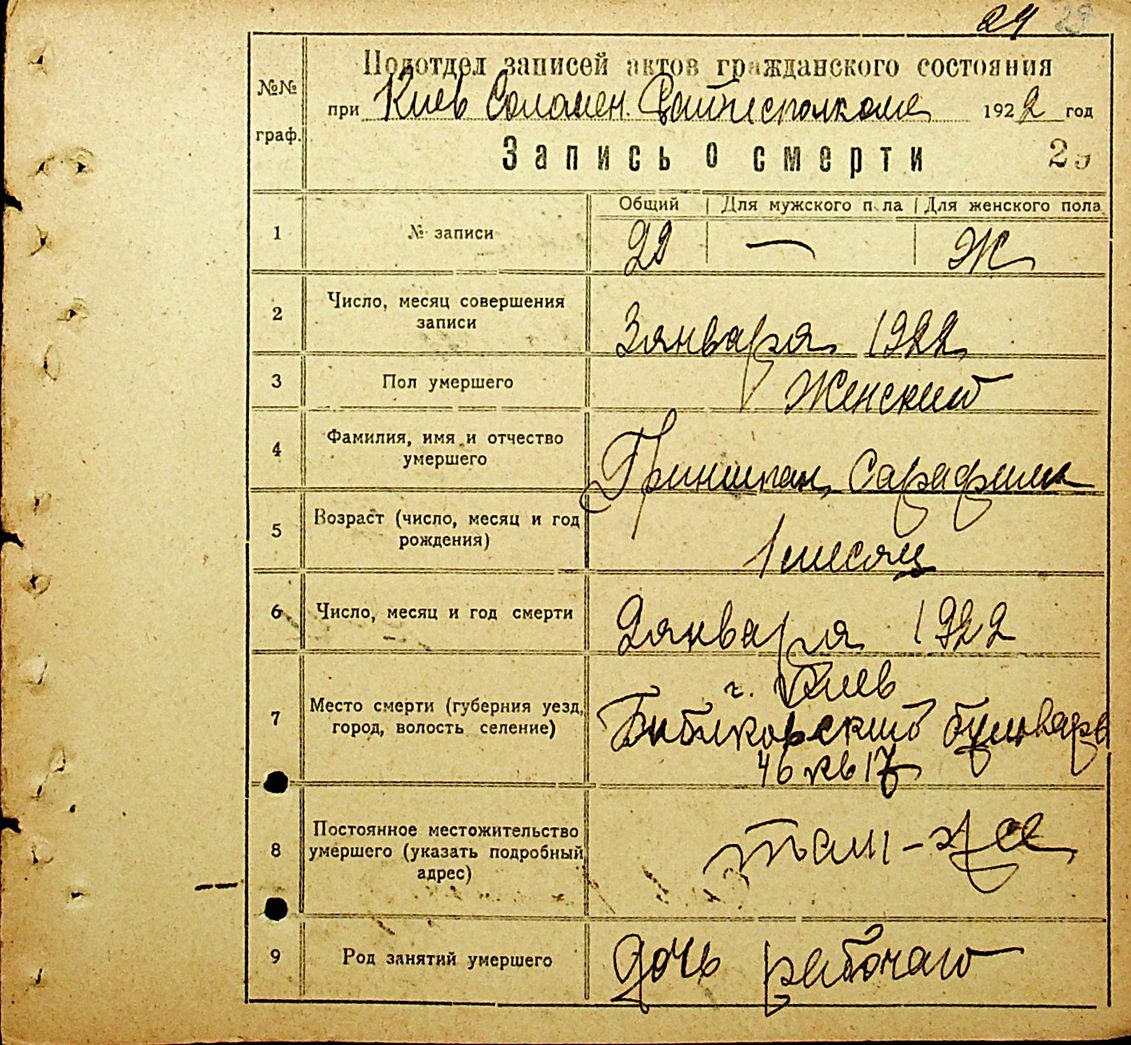 24 29
Подотдел записей актов гражданского состояния
№№
граф.
при Киев Соломен. Райисполкоме 1922 год
Запись о смерти
Общий Для мужского пола Для женского пола
1 № записи 29 — Ж
2 Число, месяц совершения
записи
3 января 1922
3 Пол умершего Женский
4 Фамилия, имя и отчество
умершего
Гриншпан, Сарафима
5 Возраст (число, месяц и год
рождения)
1 месяц
6 Число, месяц и год смерти 2 января 1922
7 Место смерти (губерния уезд,
город, волость селение)
г. Киев
Бибиковский бульвар
46 кв 17
8 Постоянное местожительство
умершего (указать подробный
адрес)
там-же
9 Род занятий умершего дочь рабочаго